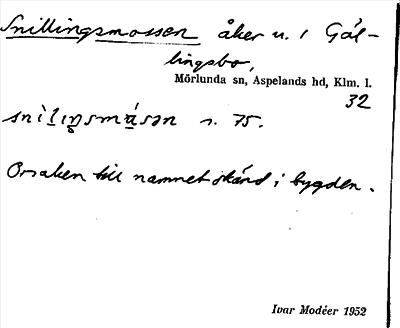 Snillingsmossen åker u. / Gål-
lingsbo,
Mörlunda sn, Aspelands hd, Klm. l.
32
s. 75.
Orsaken till namnet okänd i bygden.
Ivar Modéer 1952